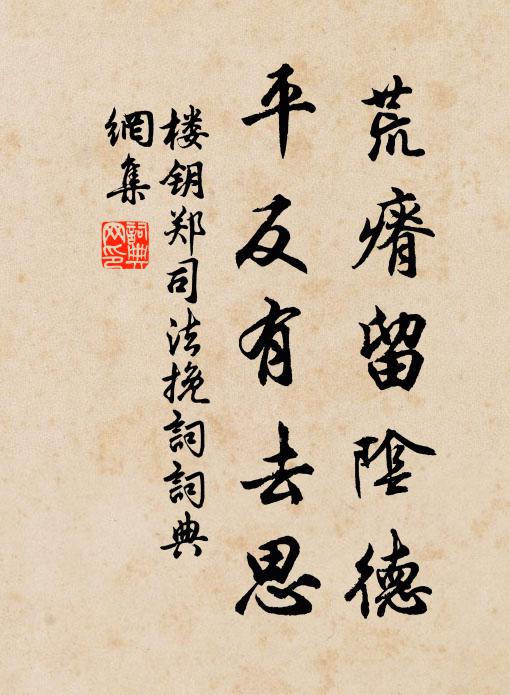 荒瘠留陰德
平反有去思
楼钥郑司法挽詞詞典
網集
詞典
网印